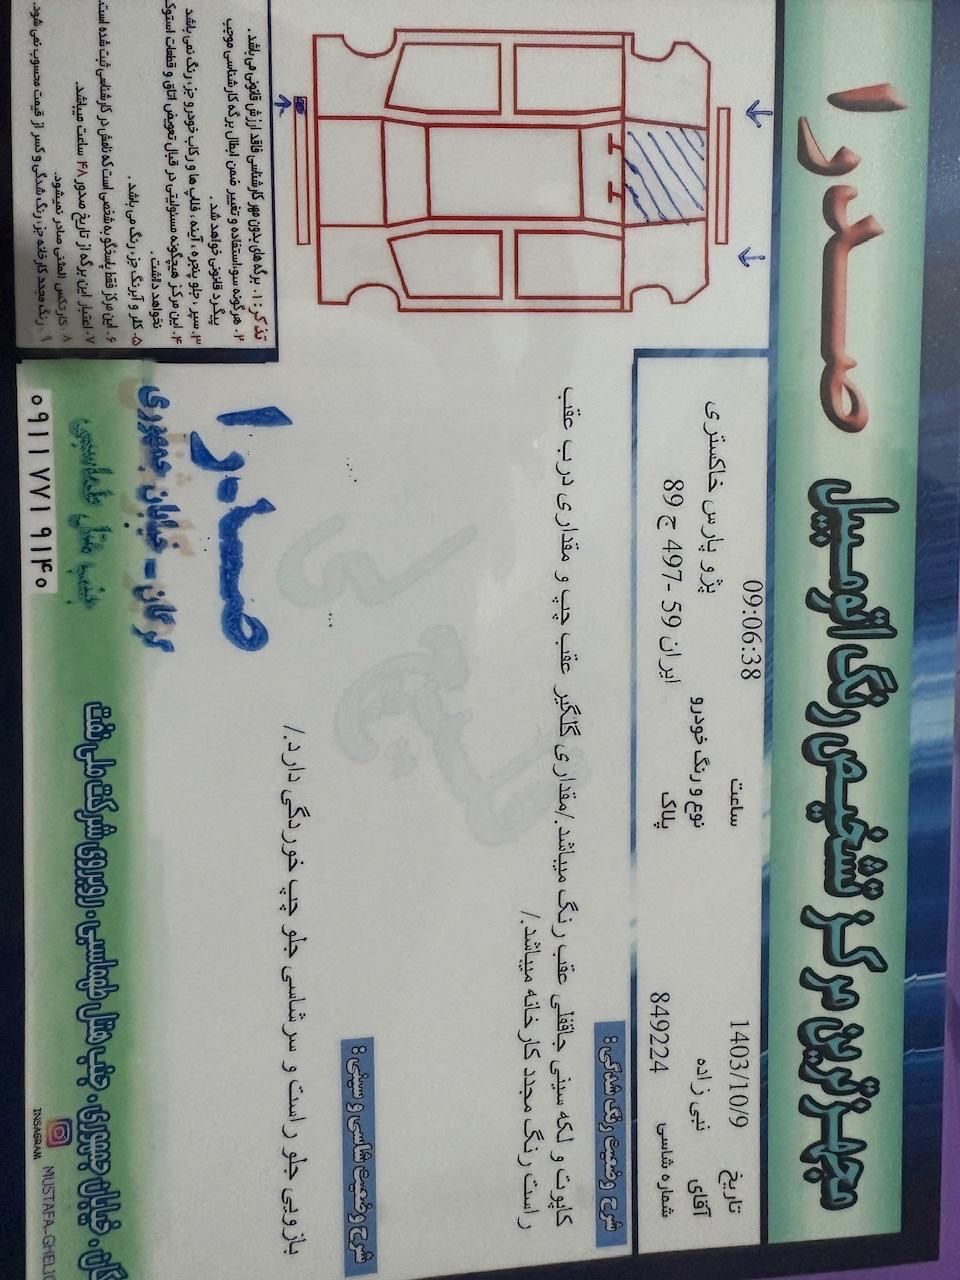 مجهزترین مرکز تشخیص رنگ اتومبیل
صدرا
تاریخ 1403/10/9 ساعت 09:06:38
آقای نبی زاده نوع و رنگ خودرو پژو پارس خاکستری
شماره شاسی 849224 پلاک ایران 59 -497 ج 89
شرح وضعیت رنگ شدگی :
کاپوت و لکه سینی جاقفلی عقب رنگ میباشد./مقداری گلگیر عقب چپ و مقداری درب عقب
راست رنگ مجدد کارخانه میباشد./
شرح وضعیت شاسی و سینی :
بازویی جلو راست و سر شاسی جلو چپ خوردگی دارد./
تذکر : ۱. برگه های بدون مهر کارشناسی فاقد ارزش قانونی می باشد.
۲. هرگونه سو استفاده و تغییر ضمن ابطال برگه کارشناسی موجب
پیگرد قانونی خواهد شد.
۳. سپر ، جلو پنجره ، آینه ، قالپ ها و رکاب خودرو جزء رنگ نمی باشد
۴. این مرکز هیچگونه مسئولیتی در قبال تعویض اتاق و قطعات استوک
نخواهد داشت.
۵. کلر و آبرنگ جزء رنگ می باشد .
۶. این مرکز فقط پاسخگو به شخصی است که نامش در کارشناسی ثبت شده است.
۷. اعتبار این برگه از تاریخ صدور ۴۸ ساعت میباشد.
۸. کارتکس المثنی صادر نمیشود.
۹. رنگ مجدد کارخانه جزء رنگ شدگی و کسر از قیمت محسوب نمی شود.
صدرا
گرگان - خیابان جمهوری
جنب هتل طهماسبی
۰۹۱۱ ۷۷۱ ۹۱۴۰
گان، خیابان جمهوری، جنب هتل طهماسبی، روبروی شرکت ملی نفت
INSAGRAM
MUSTAFA_GHELIC